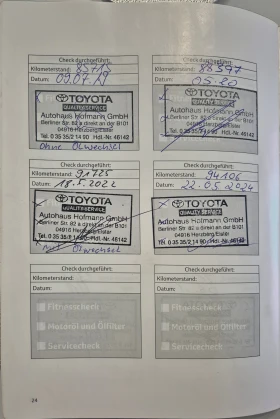 Check durchgeführt:
Kilometerstand: 83719
Datum: 09.07.19
TOYOTA
QUALITY SERVICE
Autohaus Hofmann GmbH
Berliner Str. 82 a direkt an der B101
04916 Herzberg/Elster
Tel. 0 35 35/2 14 90 Hdl.-Nr. 46142
Ohne Ölwechsel
Check durchgeführt:
Kilometerstand: 88547
Datum: 05.20
TOYOTA
QUALITY SERVICE
Autohaus Hofmann GmbH
Berliner Str. 82 a direkt an der B101
04916 Herzberg/Elster
Tel. 0 35 35/2 14 90 Hdl.-Nr. 46142
Check durchgeführt:
Kilometerstand: 91725
Datum: 18.5.2022
TOYOTA
QUALITY SERVICE
Autohaus Hofmann GmbH
Berliner Str. 82 a direkt an der B101
04916 Herzberg/Elster
Tel. 0 35 35/2 14 90 Hdl.-Nr. 46142
Ölwechsel
Check durchgeführt:
Kilometerstand: 94106
Datum: 22.05.2024
TOYOTA
QUALITY SERVICE
Autohaus Hofmann GmbH
Berliner Str. 82 a direkt an der B101
04916 Herzberg/Elster
Tel. 0 35 35/2 14 90 Hdl.-Nr. 46142
Check durchgeführt:
Kilometerstand:
Datum:
Fitnesscheck
Motoröl und Ölfilter
Servicecheck
Check durchgeführt:
Kilometerstand:
Datum:
Fitnesscheck
Motoröl und Ölfilter
Servicecheck
24